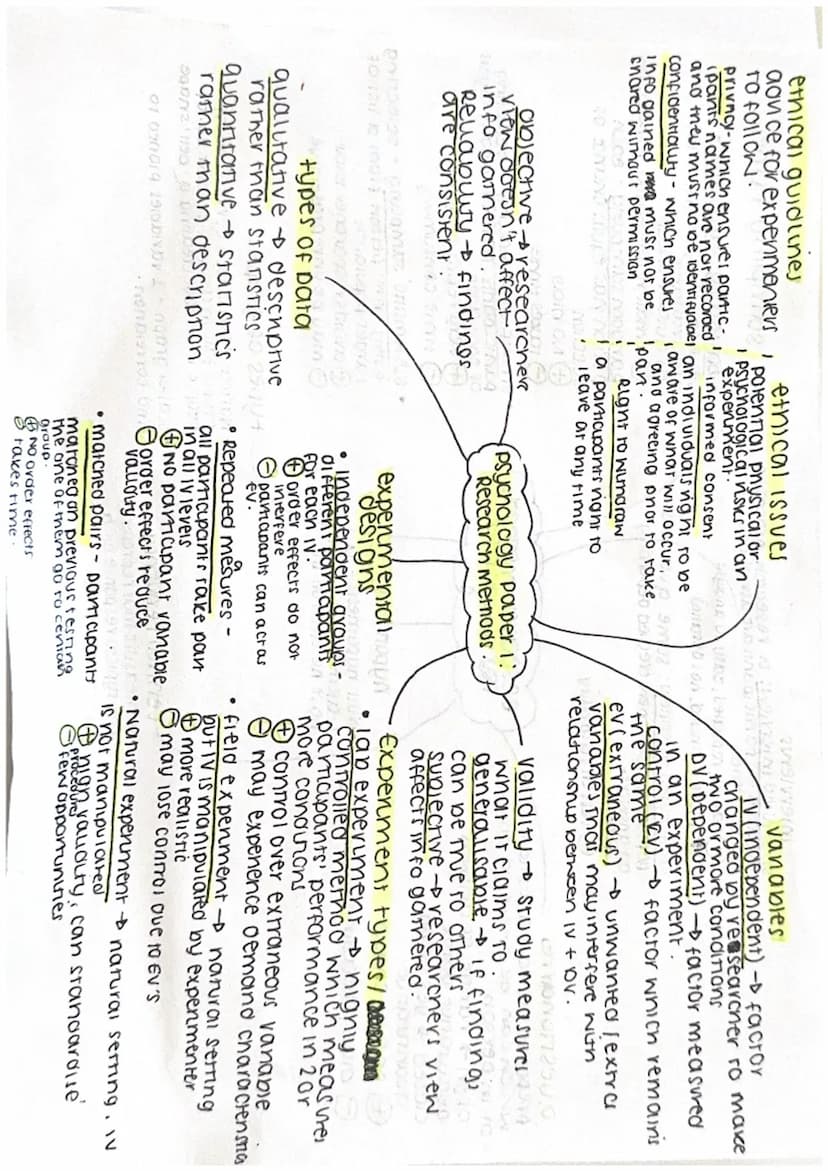 psychology paper 1:
Research methods.
ethical guidlines
advice for experimenters
to follow.
privacy - which ensures partic-
ipants names are not recorded
and they must no be identifyable
confidentiality - which ensures
info gained must not be
shared without permission
ethical issues
potential physical or
psychological risks in an
experiment.
informed consent
an individuals right to be
aware of what will occur,
and agreeing prior to take
part.
Right to withdraw
a participants right to
leave at any time
variables
IV (independent) → factor
changed by researcher to make
two or more conditions
DV (dependent) → factor measured
in an experiment.
control → factor which remains
the same
EV (extraneous) → unwanted / extra
variables that may interfere with
relationship between IV + DV.
objective → researchers
view doesn't affect
info gathered.
Reliability → findings
are consistent.
validity → study measures
what it claims to.
generalisable → if findings
can be true to others
subjective → researchers view
affects info gathered.
types of Data
qualitative → descriptive
rather than statistics
quantitative → statistics
rather than description
experimental
designs
• independent groups -
different participants
for each IV.
⊕ order effects do not
interfere
⊖ participants can act as
EV.
• Repeated mesures -
all participants take part
in all IV levels
⊕ No participant variable
⊖ order effects reduce
validity.
• matched pairs - participants
matched on previous testing
the one of them go to certian
group.
⊕ NO order effects
⊖ takes time.
experiment types /
• lab experiment → highly
controlled method which measures
participants' performance in 2 or
more conditions
⊕ control over extraneous variable
⊖ may experience demand characteristics
• field experiment → natural setting
but IV is manipulated by experimenter
⊕ more realistic
⊖ may lose control due to EV's
• Natural experiment → natural setting, IV
is not manipulated
⊕ high validity, can standardise
procedures
⊖ few opportunities